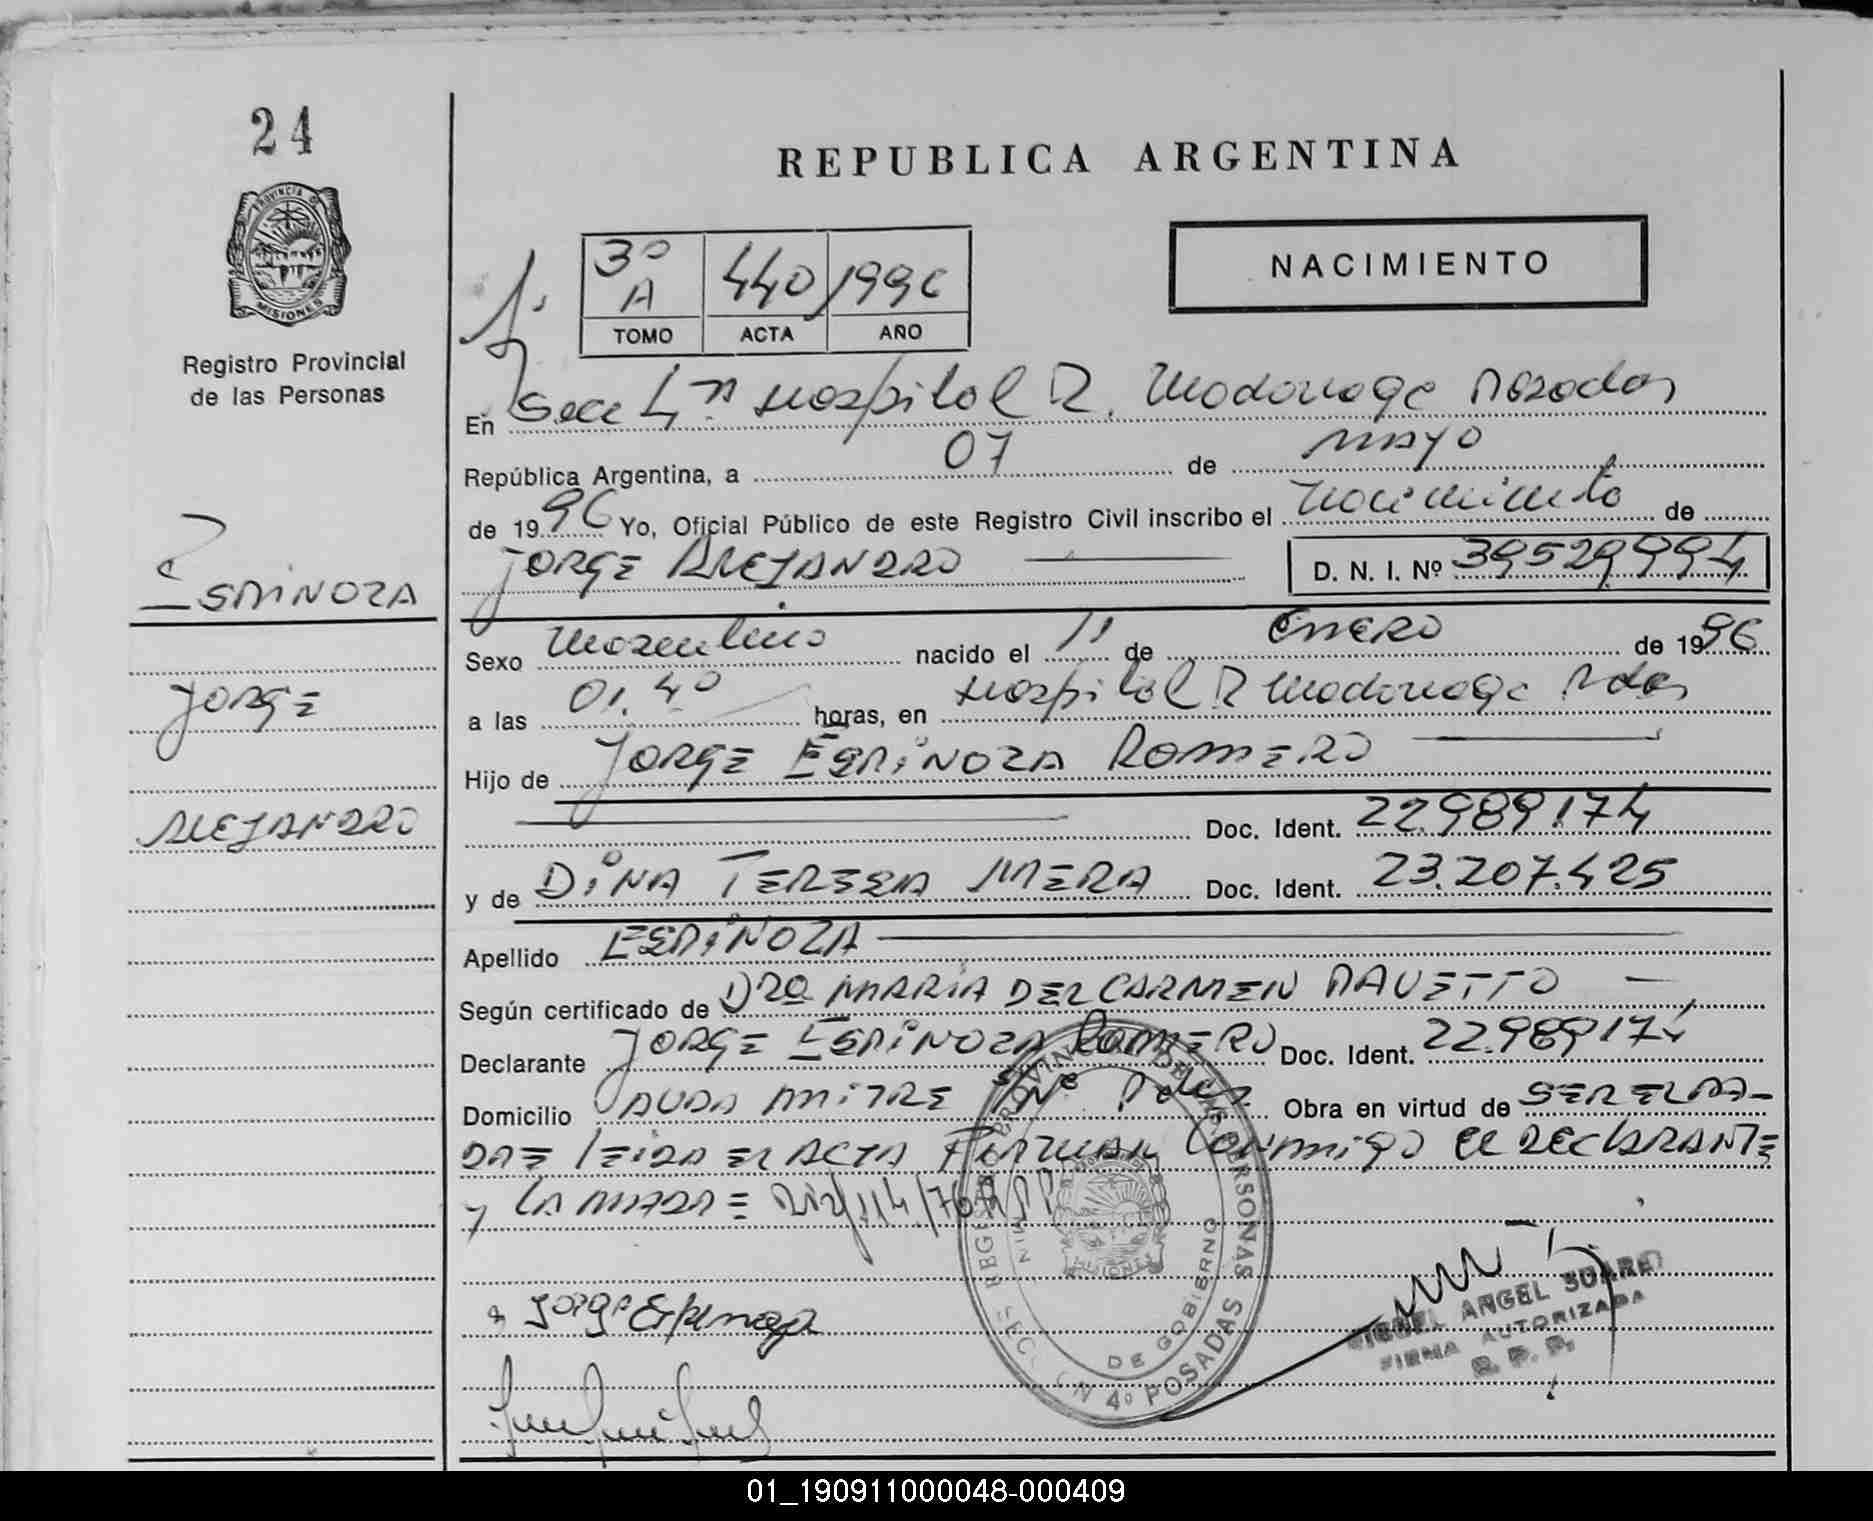 24
REPUBLICA ARGENTINA
PROVINCIA DE
MISIONES
Registro Provincial
de las Personas
3º A 440 1996
TOMO ACTA AÑO
NACIMIENTO
En Secc 4ª Hospital R. Madariaga Posadas
República Argentina, a 07 de mayo
de 1996 Yo, Oficial Público de este Registro Civil inscribo el nacimiento de
JORGE ALEJANDRO D. N. I. Nº 39529994
ESPINOZA
JORGE
ALEJANDRO
Sexo Masculino nacido el 1º de ENERO de 1996
a las 01.40 horas, en Hospital R Madariaga Pdas
Hijo de JORGE ESPINOZA ROMERO
Doc. Ident. 22.989.174
y de DINA TERESA MERA Doc. Ident. 23.207.425
Apellido ESPINOZA
Según certificado de Dra MARIA DEL CARMEN PAVETTO
Declarante JORGE ESPINOZA ROMERO Doc. Ident. 22.989174
Domicilio AVDA MITRE S/Nº Pdas Obra en virtud de SER EL PA-
DRE leida EL ACTA Firman Conmigo el DECLARANTE
y LA MADRE
Jorge Espinoza
REGISTRO PROVINCIAL DE LAS PERSONAS
DE GOBIERNO
SECCION 4º POSADAS
MIGUEL ANGEL SUAREZ
FIRMA AUTORIZADA
R. P. P.
01_190911000048-000409